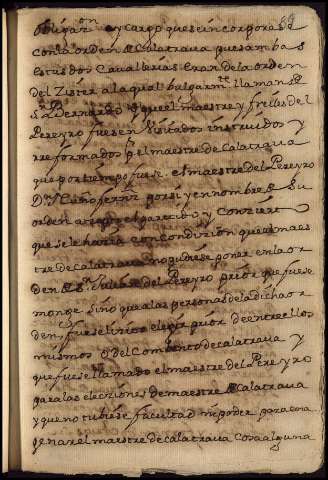 obligaçon y cargo que se incorporase
con la orden de Calatrava pues ambas
estas dos Cavallerias eran de la orden
del Zister a la qual bulgarmte llaman de
Sn Bernardo y que el maestre y freiles del
Pereyro fuesen visitados instruidos y
reformados pr el maestre de Calatrava
que por tiempo fuese. el maestre del Pereyro
Dn Nuño ferrnz por si y en nombre de su
orden açepto el partido y conzierto
que se le haria con condizion que el maes
tre de Calatrava no pudiese poner en la or
den de Sn Julian del Pereyro prior que fuese
monge. sino que a las personas de la dicha or
den, fuese licito elegir prior de entre ellos
mismos o del Combento de Calatrava y
que fuese llamado el maestre del Pereyro
para las elecziones de maestre de Calatrava
y que no tubiese facultad ni poder para ena
genar el maestre de Calatrava cosa alguna